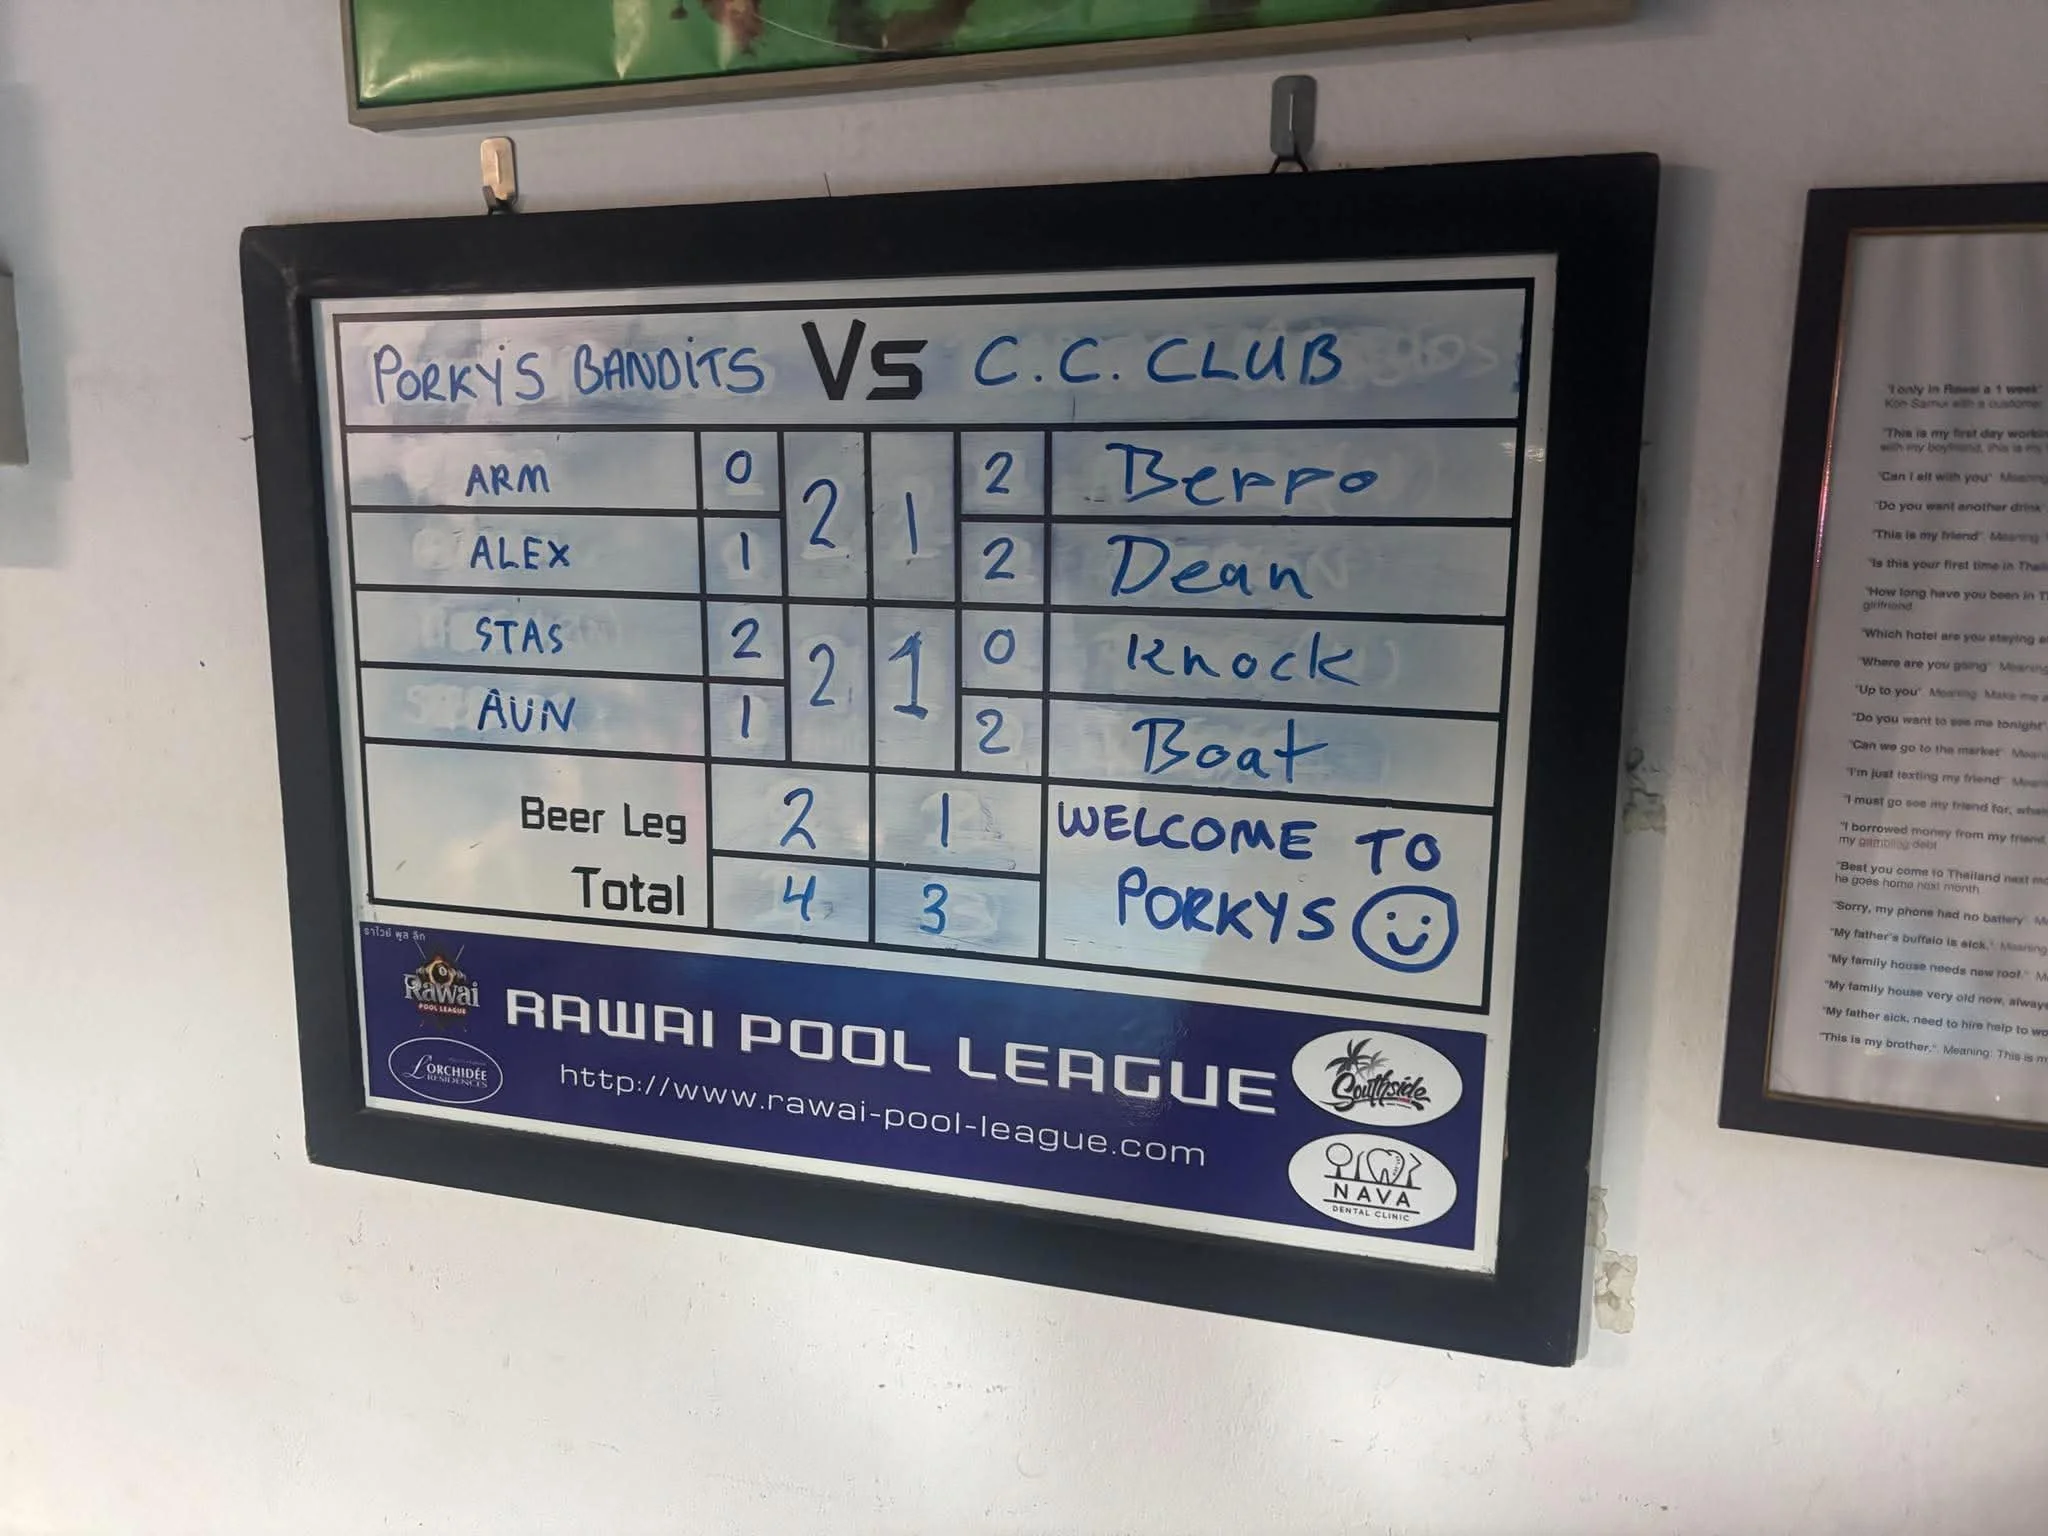 PORKY'S BANDITS Vs C.C.CLUB
ARM 0 2 1 2 Berro
ALEX 1 2 Dean
STAS 2 2 1 0 Knock
AUN 1 2 Boat
Beer Leg 2 1 WELCOME TO
Total 4 3 PORKYS
ราไวย์ พูล ลีก
Rawai
POOL LEAGUE
RAWAI POOL LEAGUE
http://www.rawai-pool-league.com
L'ORCHIDÉE
RESIDENCES
Southside
NAVA
DENTAL CLINIC
"I only in Rawai a 1 week"
Koh Samui with a customer
"This is my first day
with my boyfriend, this is my
"Can I sit with you" Meaning
"Do you want another drink"
"This is my friend". Meaning:
"Is this your first time in
"How long have you been in
girlfriend
"Which hotel are you staying
"Where are you going" Meaning
"Up to you" Meaning: Make me
"Do you want to see me tonight"
"Can we go to the market"
"I'm just texting my friend"
"I must go see my friend for,
"I borrowed money from my friend
my gambling debt
"Best you come to Thailand next
he goes home next month
"Sorry, my phone had no battery"
"My father's buffalo is sick."
"My family house needs new roof."
"My family house very old now,
"My father sick, need to hire help to
"This is my brother.". Meaning: This is